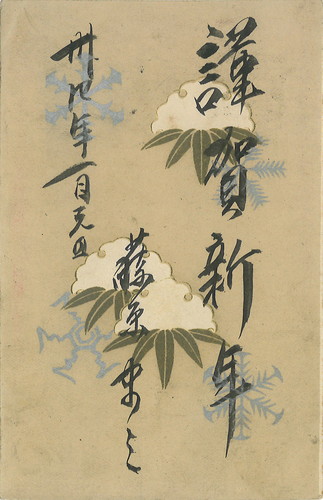 謹賀新年
卅九年一月元旦
藤原末之